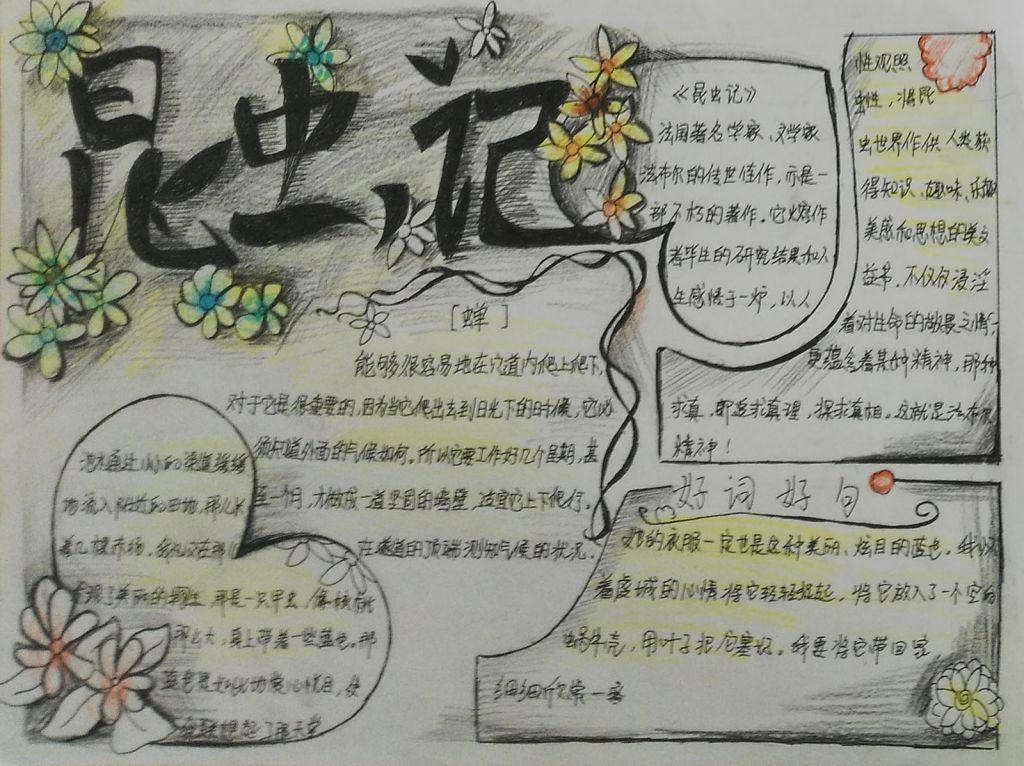 昆虫记
《昆虫记》
法国著名学家、文学家
法布尔的传世佳作，亦是一
部不朽的著作。它熔作
者毕生的研究结果和人
生感悟于一炉，以人
性观照
虫性，将昆
虫世界作供人类获
得知识、趣味、乐趣
美感和思想的美文
益书。不仅仅浸淫
着对生命的敬畏之情，
更蕴含着某种精神，那种
求真，即追求真理，探求真相。这就是法布尔
精神！
[蝉]
能够很容易地在穴道内爬上爬下，
对于它是很重要的，因为当它爬出去到日光下的时候，它必
须知道外面的气候如何。所以它要工作好几个星期，甚
至一个月，才做成一道坚固的墙壁，适宜它上下爬行。
在隧道的顶端测知气候的状况。
池水通过小小的渠道缓缓
地流入附近的田地，那儿长
着几棵赤杨，我又在那儿
发现了美丽的生物，那是一只甲虫，像核桃
那么大，身上带着一些蓝色。那
蓝色是如此的赏心悦目，使
我联想起了那天堂
好词好句
她的衣服一定也是这种美丽、炫目的蓝色。我怀
着虔诚的心情将它轻轻捉起，将它放入了一个空的
蜗牛壳，用叶子把它塞好。我要将它带回家，
细细欣赏一番